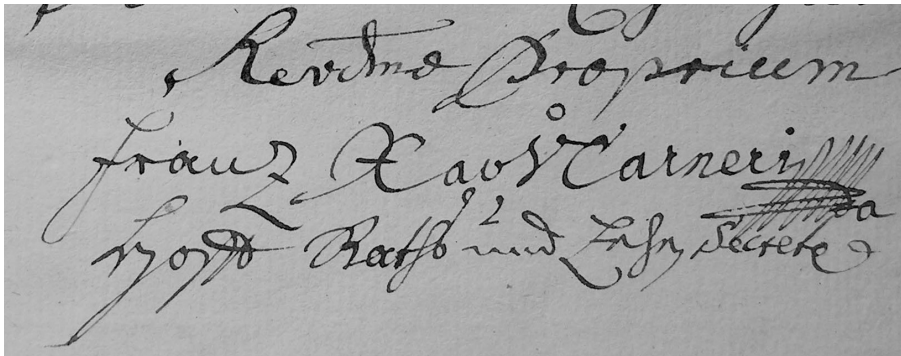 Revdme Proprium
Franz Xav Carneri
Hofft Raths und Lehn Secret